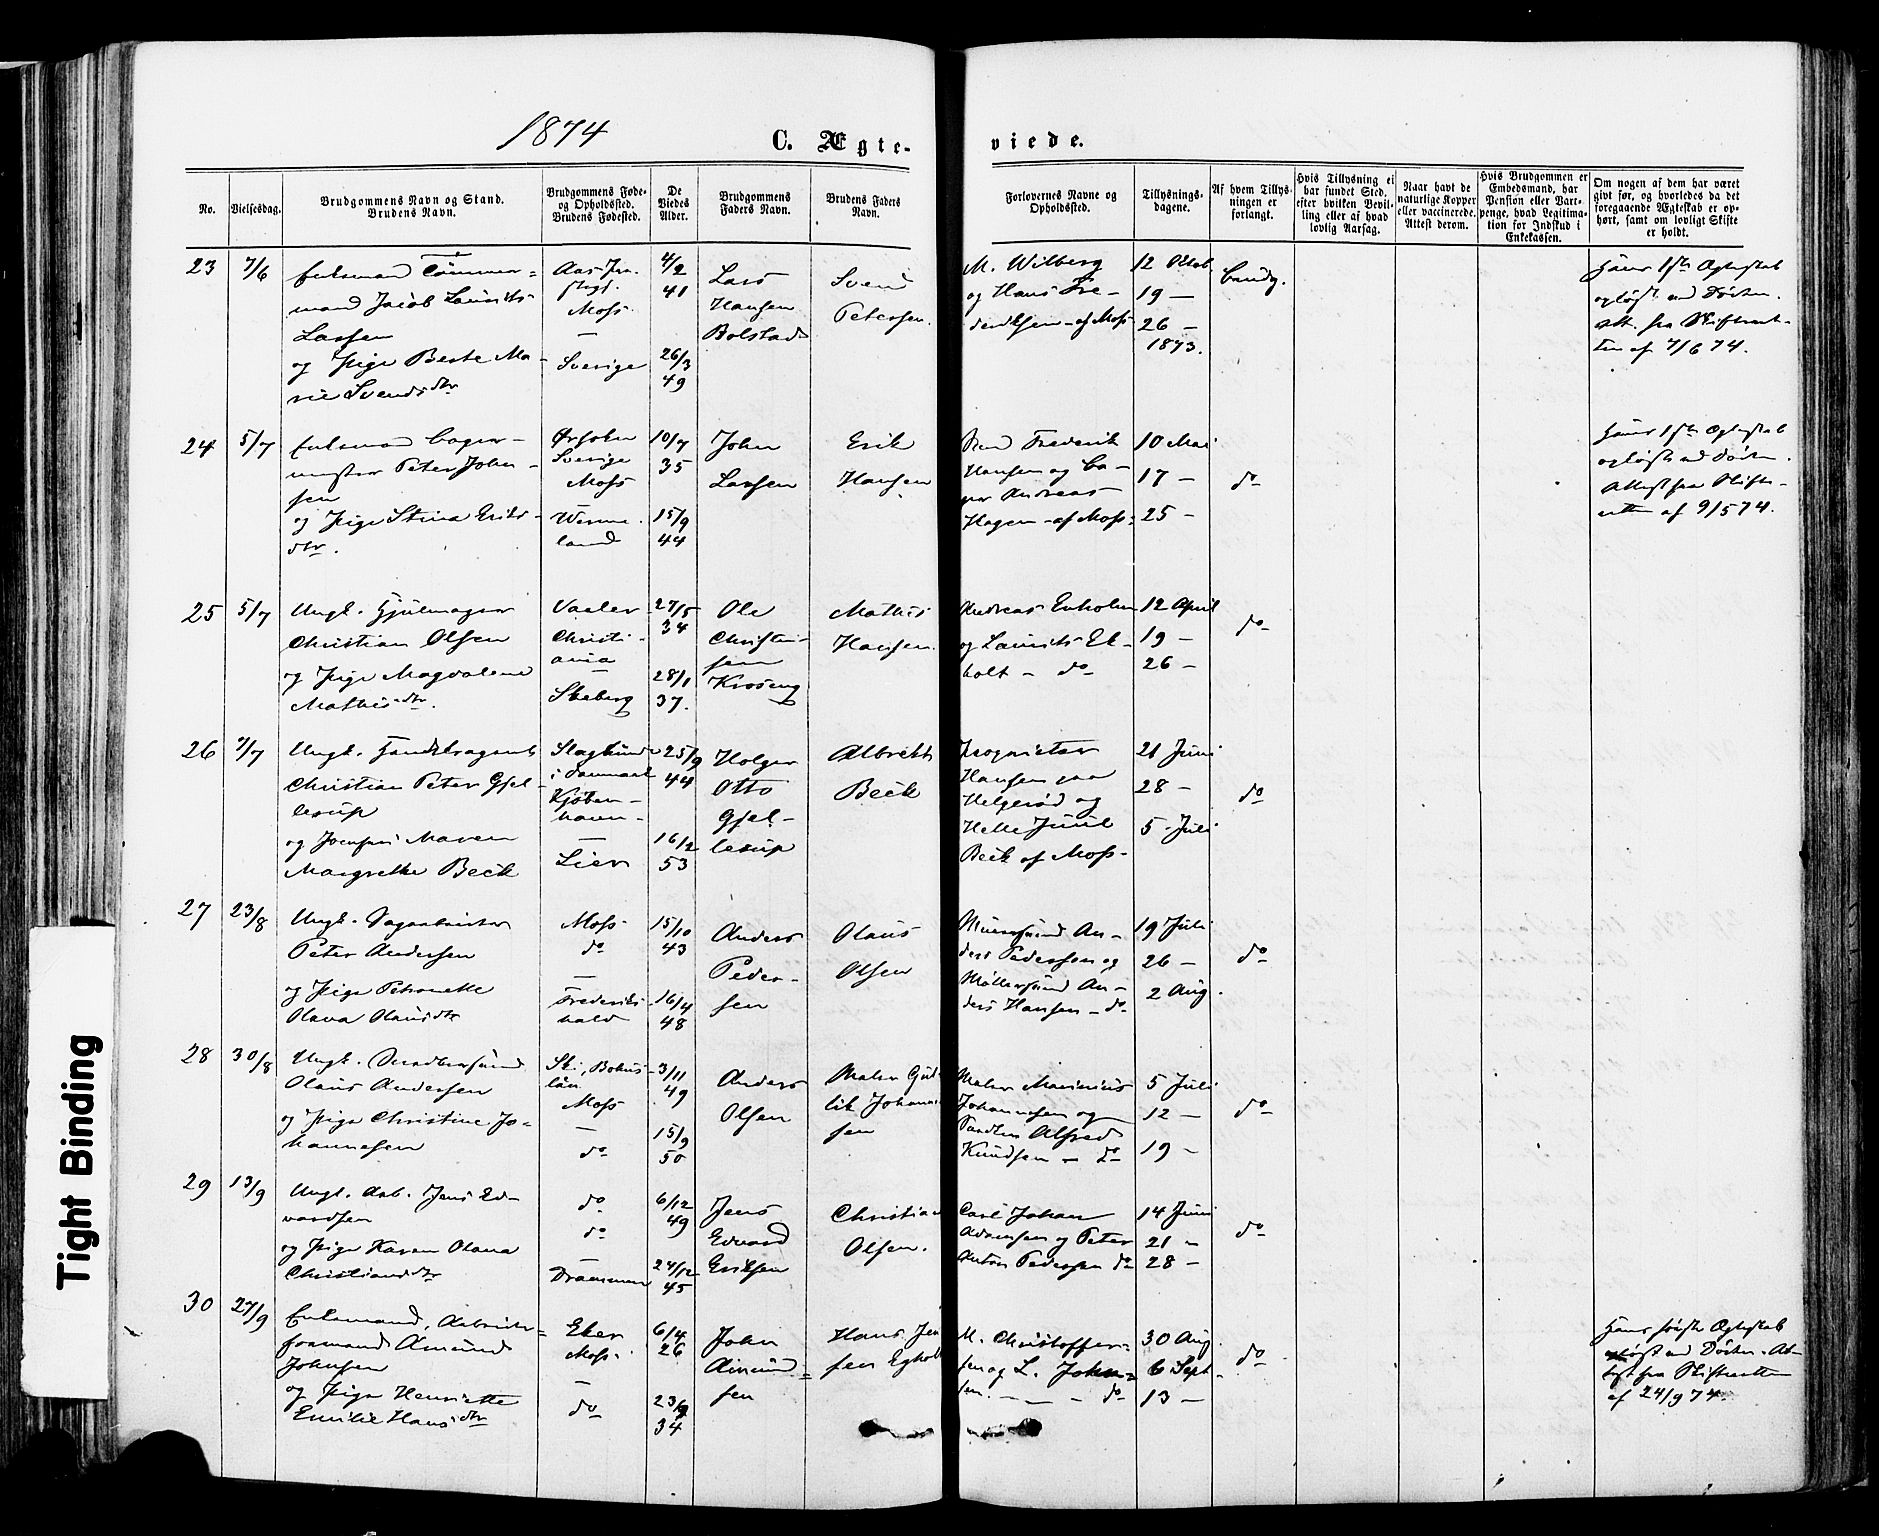 1874
C. Ægte-
viede.
No.
Vielsesdag.
Brudgommens Navn og Stand.
Brudens Navn.
Brudgommens Føde-
og Opholdssted.
Brudens Fødested.
De
Viedes
Alder.
Brudgommens
Faders Navn.
Brudens Faders
Navn.
Forlovernes Navne og
Opholdssted.
Tillysnings-
dagene.
Af hvem Tillys-
ningen er
forlangt.
Hvis Tillysning ei
har fundet Sted,
efter hvilken Bevil-
ling eller af hvad
lovlig Aarsag.
Naar havt de
naturlige Kopper
eller vaccinerede.
Attest derom.
Hvis Brudgommen er
Embedsmand, har
Pension eller Vart-
penge, hvad Legitima-
tion for Indskud i
Enkekassen.
Om nogen af dem har været
gift før, og hvorledes da det
foregaaende Ægteskab er op-
hørt, samt om lovligt Skifte
er holdt.
23
7/6
Enkemand Tømmer=
mand Jacob Laurits
Larsen
og Pige Berte Ma-
rie Svendsdtr
Moss
Sverige
4/2
41
26/3
49
Lars
Hansen
Bolstad
Svend
Petersen.
M. Wilberg
og Hans Fre-
deriksen - af Moss
12 Oktob.
19 —
26 —
1873.
Hans 1ste Ægteskab
opløst ved Døden.
Att. fra Skifteret-
ten af 7/6 74.
24
5/7
Enkemand Bager-
mester Peter John-
sen
og Pige Stina Eriks-
dtr.
Sverige
Moss
Werme-
land
10/7
35
15/9
44
John
Larsen
Erik
Hansen
Frederik
Hansen og Ba-
ger Andreas
Hagen - af Moss
10 Mai
17 —
25 —
do
Hans 1ste Ægteskab
opløst ved Døden.
Attest fra Skifte-
retten af 9/5 74.
25
5/7
Ungk. Hjulmager
Christian Olsen
og Pige Magdalene
Mathisdtr.
Vaaler
Christi-
ania
—
Skeberg
27/5
34
28/1
37.
Ole
Christen-
sen
Kroseng
Mathis
Hansen.
Andreas Enholm
og Laurits Ek-
holt - do
12 April
19 —
26 —
do
26
7/7
Ungk. Handelsagent
Christian Peter Gjel-
lerup
og Jomfru Maren
Margrethe Beck
i Danmark
Kjøben-
havn-
—
Lier
25/9
44
16/2
53
Holger
Otto
Gjel-
lerup
Albrekt
Beck
Proprietær
Hansen paa
Helgerød og
Helle Juul
Beck af Moss-
21 Juni
28 —
5 Juli
do
27
23/8
Ungk. Sagarbeider
Peter Andersen
og Pige Petronelle
Olava Olausdtr
Moss
do
—
Frederiks
hald
15/10
43
16/4
48
Anders
Peder-
sen
Olaus
Olsen
Muursvend An-
ders Pedersen og
Møllersvend An-
ders Hansen - do
19 Juli
26 —
2 Aug.
do
28
30/8
Ungk. Snedkersvend
Olaus Andersen
og Pige Christine Jo-
hannesen
Ski, Bohus
län
Moss
—
do
3/11
49
15/9
50
Anders
Olsen
Maler Gud-
lik Johanne
sen
Maler Marinius
Johannesen og
Alfred
Knudsen - do
5 Juli
12 —
19 —
do
29
13/9
Ungk. Arb. Jens Ed-
vardsen
og Pige Karen Olava
Christiansdtr
do
do
—
Drammen
6/12
49
24/12
45
Jens
Edvard
Eriksen
Christian
Olsen.
Carl Johan
Adamsen og Peter
Anton Pedersen do
14 Juni
21 —
28 —
do
30
27/9
Enkemand, Arbeider=
formand Amund
Johnsen
og Pige Henriette
Emilie Hansdtr
Eker
Moss
—
do
6/4
26
23/9
34
John
Amund=
sen
Hans Jen
sen Egholt
M. Christoffer-
sen og L. John=
sen. — — do
30 Aug.
6 Sept.
13 —
do
Hans første Ægteskab
opløst ved Døden. At-
test fra Skifteretten
af 24/9 74.
Tight Binding